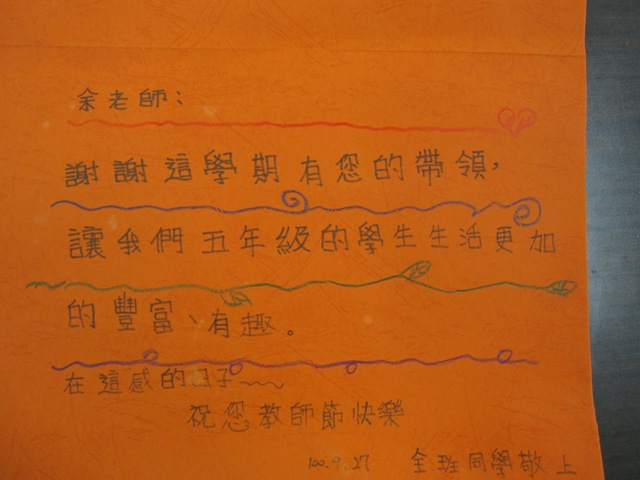 余老師：
謝謝這學期有您的帶領，
讓我們五年級的學生生活更加
的豐富、有趣。
在這感的日子~~~
祝您教師節快樂
100.9.27 全班同學敬上